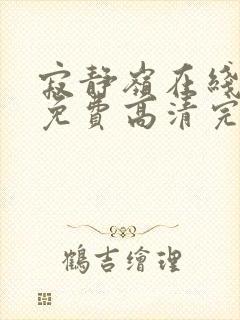 寂靜嶺在綫
免費高清完
鶴吉繪理